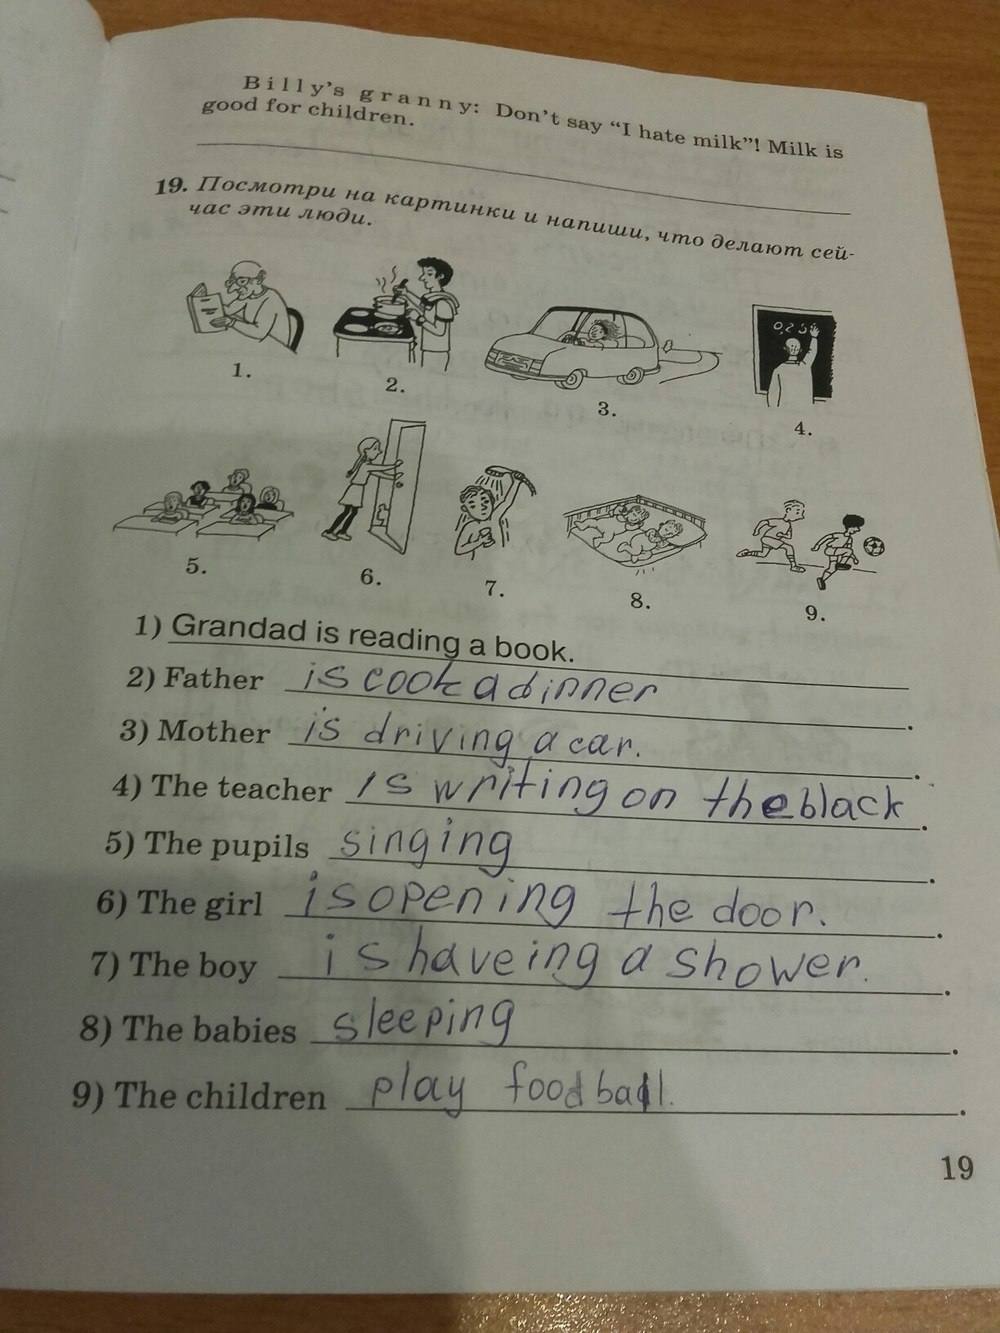 Billy's granny: Don't say "I hate milk"! Milk is
good for children.
19. Посмотри на картинки и напиши, что делают сей-
час эти люди.
1.
2.
3.
4.
5.
6.
7.
8.
9.
1) Grandad is reading a book.
2) Father is cook a dinner.
3) Mother is driving a car.
4) The teacher is writing on the black.
5) The pupils singing.
6) The girl is opening the door.
7) The boy is haveing a shower.
8) The babies sleeping.
9) The children play foodball.
19